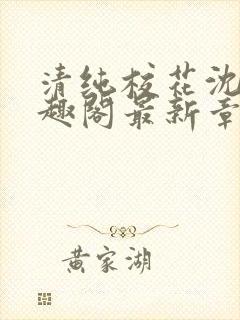 清纯校花沈
趣阁最新章
黄家湖